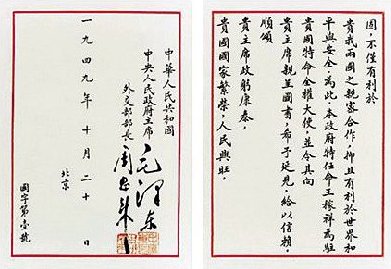 固,不僅有利於
貴我兩國之親密合作,抑且有利於世界和
平與安全。為此,本政府特任命王稼祥為駐
貴國特命全權大使,並令其向
貴主席親呈國書,希予延見,給以信賴。
順頌
貴主席政躬康泰,
貴國國家繁榮,人民興旺。
中華人民共和國
中央人民政府主席 毛澤東
外交部部長 周恩來
一九四九年十月二十日
北京
國字第壹號